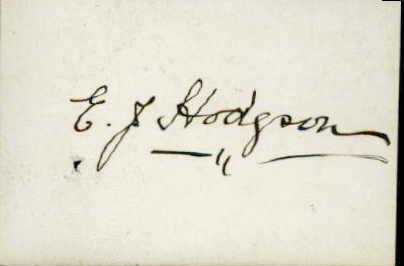 E. J Hodgson